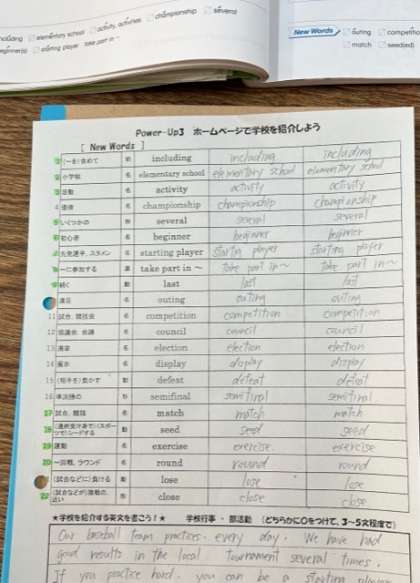 including elementary school activity, activities championship several
beginner(s) starting player take part in ~
New Words outing competitio
match seed(ed)
Power-Up3 ホームページで学校を紹介しよう
[ New Words ]
(~を)含めて including including including
小学校 名 elementary school elementary school elementary school
活動 名 activity activity activity
4 優勝 名 championship championship championship
いくつかの 形 several several several
初心者 名 beginner beginner beginner
先発選手、スタメン 名 starting player starting player starting player
~に参加する take part in ~ take part in~ take part in~
続く 動 last last last
遠足 名 outing outing outing
11 試合、競技会 名 competition competition competition
12 協議会、会議 名 council council council
13 選挙 名 election election election
14 展示 名 display display display
15 (相手を)負かす 動 defeat defeat defeat
16 準決勝の 形 semifinal semifinal semifinal
17 試合、競技 名 match match match
18 seed seed seed
19 運動 名 exercise exercise exercise
20 一回戦、ラウンド 名 round round round
(試合などに)負ける 動 lose lose lose
22 (試合などが)接戦の、近い 形 close close close
★学校を紹介する英文を書こう!★ 学校行事・部活動 (どちらかに〇をつけて、3~5文程度で)
Our baseball team practices every day. We have had
good results in the local tournament several times.
If you practice hard, you can be a starting player